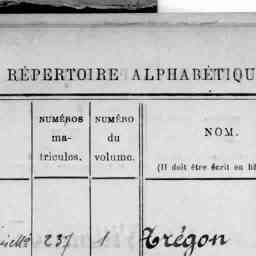 RÉPERTOIRE ALPHABÉTIQU
NUMÉROS
ma-
tricules.
NUMÉRO
du
volume.
NOM.
(Il doit être écrit en bâ
237 1 Trégon